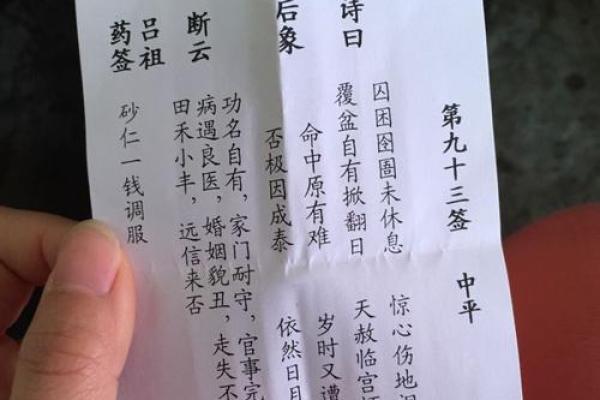 第九十三签 中平
诗曰
囚困囹圄未休息 惊心伤地
覆盆自有掀翻日 天赦临宫
后象
命中原有难 岁时又遭
否极因成泰 依然日
断云
功名自有，家门耐守，官事完
病遇良医，婚姻貌丑，走失不
田禾小丰，远信来否
吕祖
药签
砂仁一钱调服